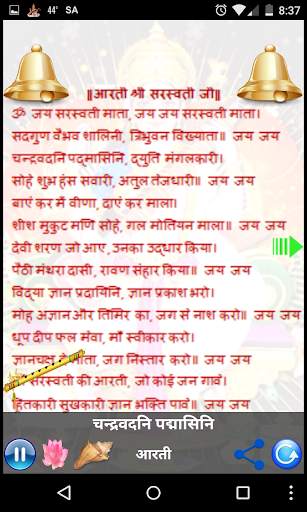 44' SA 8:37
॥आरती श्री सरस्वती जी॥
ॐ जय सरस्वती माता, जय जय सरस्वती माता।
सदगुण वैभव शालिनी, त्रिभुवन विख्याता॥ जय जय
चन्द्रवदनि पद्मासिनि, द्युति मंगलकारी।
सोहे शुभ हंस सवारी, अतुल तेजधारी॥ जय जय
बाएं कर में वीणा, दाएं कर माला।
शीश मुकुट मणि सोहे, गल मोतियन माला॥ जय जय
देवी शरण जो आए, उनका उद्धार किया।
पैठी मंथरा दासी, रावण संहार किया॥ जय जय
विद्या ज्ञान प्रदायिनि, ज्ञान प्रकाश भरो।
मोह अज्ञान और तिमिर का, जग से नाश करो॥ जय जय
धूप दीप फल मेवा, माँ स्वीकार करो।
ज्ञानचक्षु दे माता, जग निस्तार करो॥ जय जय
सरस्वती की आरती, जो कोई जन गावे।
हितकारी सुखकारी ज्ञान भक्ति पावे॥ जय जय
चन्द्रवदनि पद्मासिनि
आरती